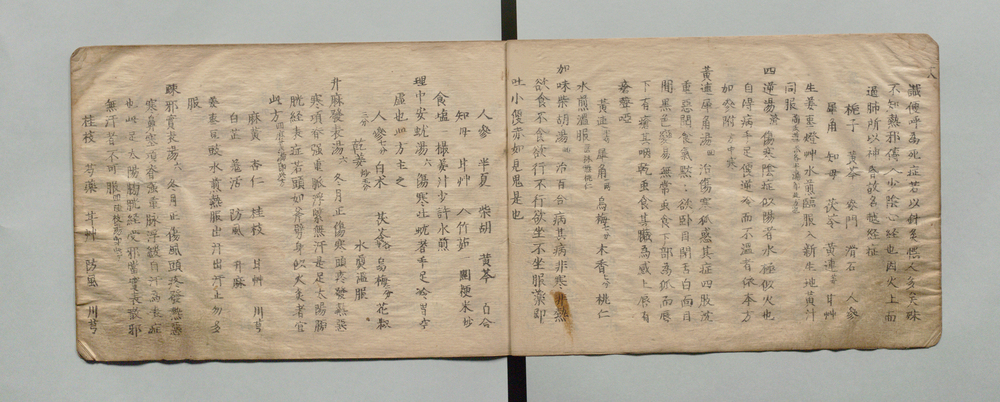 識便呼爲死症若以針灸燃人多矣殊
不知熱邪傳入小陰心經也因火上而
逼肺所以神昏欲名越經症
梔子 黃芩 麥門 滑石 人參
犀角 知母 茯苓 黃連 甘艸
生姜重燈呻水煎臨服入新生地黃汁
同服
四逆湯 傷寒陰症似陽者水極似火也
自得病手足便逆冷而不溫者依本方
加
黃連犀角湯 治傷寒狐惑其症四肢沈
重惡聞食氣默欲卧目閉舌白面目
間黑色變易無常虫食下部爲狐而唇
下有瘡其咽乾重食其臟爲惑上唇有
瘡聲啞
黃連 犀角 烏梅 木香 桃仁
水煎溫服
加味柴胡湯 治百合病其病非寒非熱
欲食不食欲行不行欲坐不坐服藥即
吐小便亦如見鬼是也
人參 半夏 柴胡 黃芩 百合
知母 甘艸 竹茹 粳米炒
食塩一撮 姜汁少許水煎
理中安蚘湯 傷寒吐蚘者手足冷胃空
虛也此方主之
人參 白朮 茯苓 烏梅 花椒
乾姜 水煎溫服
升麻發表湯 冬月正傷寒頭疼發熱惡
寒項脊強重脈浮緊無汗是足太陽膀
胱經表症若頭如斧劈身似火炙者宜
此方
麻黃 杏仁 桂枝 甘艸 川芎
白芷 羌活 防風 升麻
姜 豆豉水煎熱服出汗出汗止勿多
服
疎邪實表湯 冬月正傷風頭疼發熱惡
寒鼻塞項脊強重脉浮緩自汗爲表症
也此足太陽膀胱經受邪當實表散邪
無汗者不可服
桂枝 芍藥 甘艸 防風 川芎